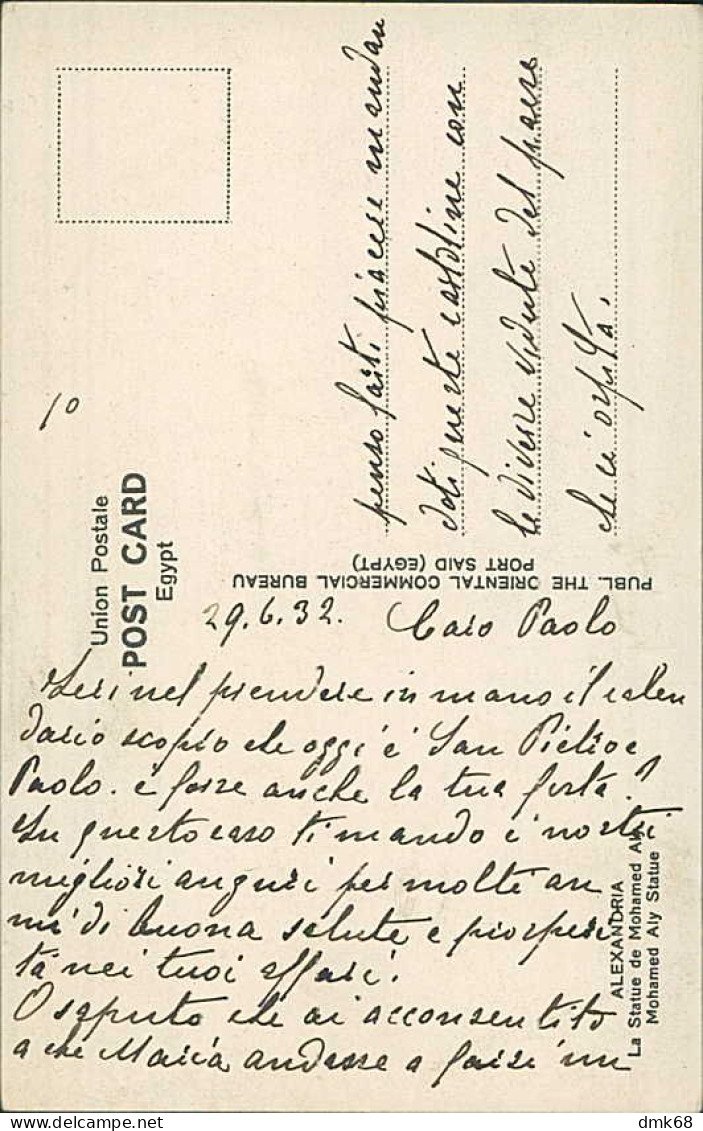 penso farti piacere mandan
doti queste cartoline con
le diverse vedute del paese
che ci ospita.
10
Union Postale
POST CARD
Egypt
PUBL. THE ORIENTAL COMMERCIAL BUREAU
PORT SAID (EGYPT)
29.6.32. Caro Paolo
Ieri nel prendere in mano il calen
dario scopro che oggi è San Pietro e
Paolo. è forse anche la tua festa?
In questo caso ti mando i nostri
migliori auguri per molti an
ni di buona salute e prosperi
tà nei tuoi affari.
O saputo che ai acconsentito
a che Maria andasse a farsi un
ALEXANDRIA
La Statue de Mohamed Aly
Mohamed Aly Statue
dmk68